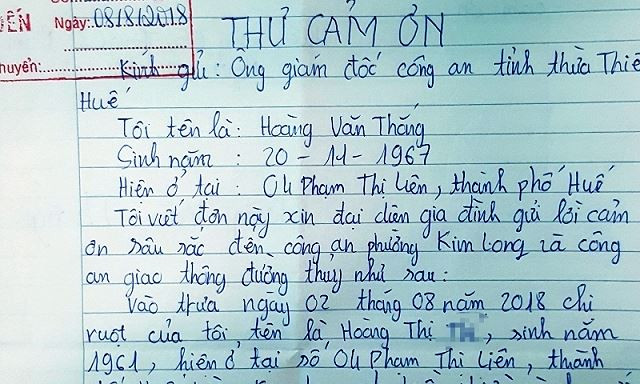 ĐẾN
Ngày: 08/8/2018
huyển:
THƯ CẢM ƠN
Kính gửi: Ông giám đốc công an tỉnh thừa Thiê
Huế
Tôi tên là: Hoàng Văn Thắng
Sinh năm : 20 - 11 - 1967
Hiện ở tại : 04 Phạm Thị Liên, thành phố Huế
Tôi viết đơn này xin đại diện gia đình gửi lời cảm
ơn sâu sắc đến công an phường Kim Long và công
an giao thông đường thủy như sau:
Vào trưa ngày 02 tháng 08 năm 2018 chị
ruột của tôi tên là Hoàng Thị Th , sinh năm
1961, hiện ở tại số 04 Phạm Thị Liên, thành